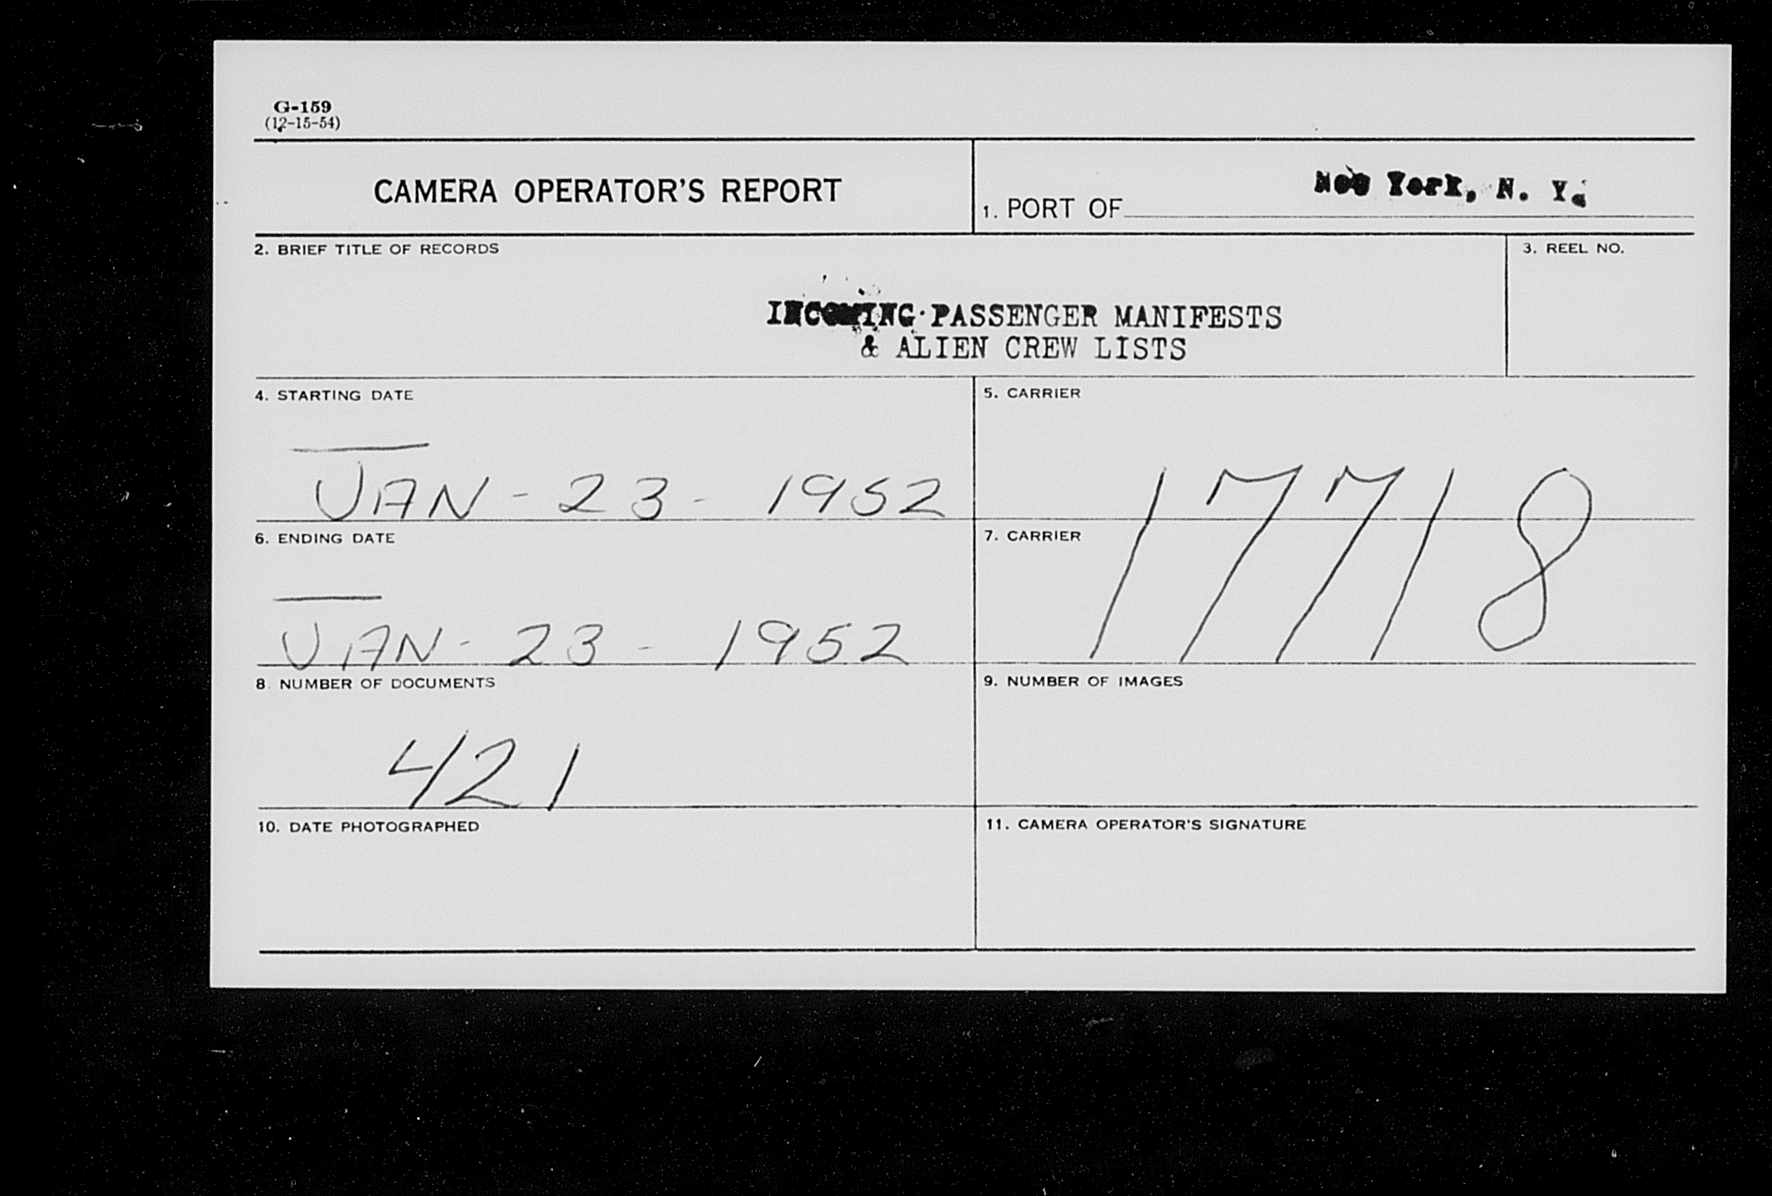 G-159
(12-15-54)
CAMERA OPERATOR'S REPORT
1. PORT OF New York, N. Y.
2. BRIEF TITLE OF RECORDS
3. REEL NO.
INCOMING PASSENGER MANIFESTS
& ALIEN CREW LISTS
4. STARTING DATE
5. CARRIER
JAN - 23 - 1952
17718
6. ENDING DATE
7. CARRIER
JAN - 23 - 1952
8. NUMBER OF DOCUMENTS
9. NUMBER OF IMAGES
421
10. DATE PHOTOGRAPHED
11. CAMERA OPERATOR'S SIGNATURE